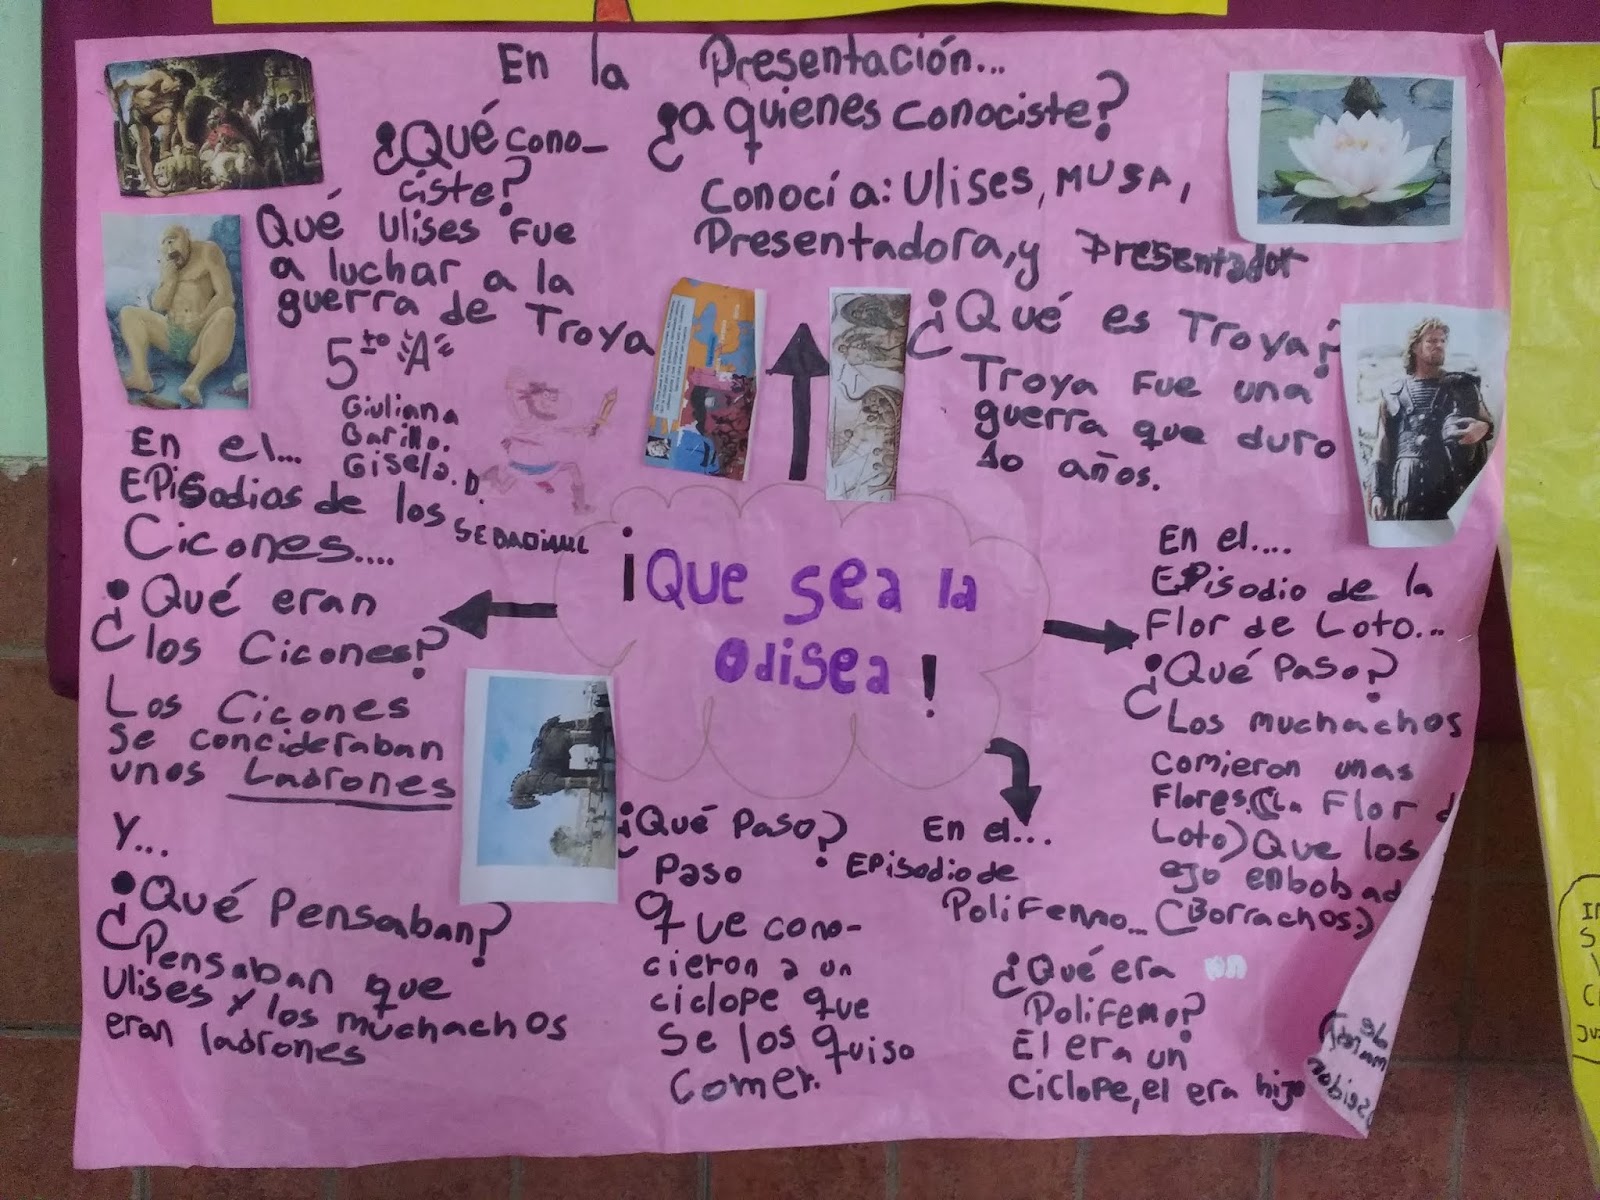 En la Presentación...
¿Qué cono-
ciste?
Qué Ulises fue
a luchar a la
guerra de Troya
¿a quienes conociste?
Conocí a: Ulises, MUSA,
Presentadora, y Presentador
¿Qué es Troya?
Troya fue una
guerra que duro
10 años.
5to "A"
Giuliana
Barillo.
Gisela. D.
¡Que sea la
Odisea!
En el...
EPisodios de los
Cicones....
¿Qué eran
los Cicones?
Los Cicones
se concideraban
unos Ladrones
Y...
¿Qué Pensaban?
Pensaban que
Ulises y los muchachos
eran ladrones
En el....
EPisodio de la
Flor de Loto...
¿Qué Paso?
Los muchachos
comieron unas
Flores.(La Flor d
Loto) Que los
ejo enbobad
(Borrachos.)
En el....
EPisodio de
Polifemo...
¿Qué Paso?
Paso
que cono-
cieron a un
ciclope que
se los quiso
comer.
¿Qué era
Polifemo?
El era un
ciclope, el era hijo